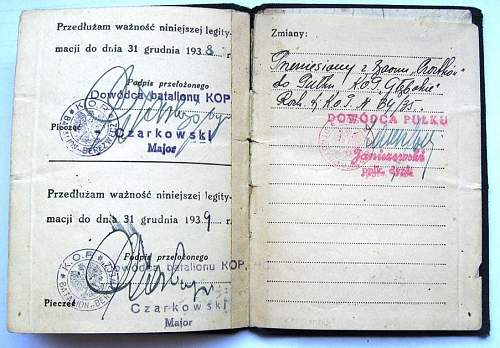 Przedłużam ważność niniejszej legity-
macji do dnia 31 grudnia 1938 r.
Podpis przełożonego
Dowódca batalionu KOP
K.O.P.
Pieczęć
Czarkowski
Major
Przedłużam ważność niniejszej legity-
macji do dnia 31 grudnia 1939 r.
Podpis przełożonego
Dowódca batalionu KOP.
K.O.P.
Pieczęć
Czarkowski
Major
Zmiany:
Przeniesiony z Baonu
do Pułku K.O.P. Głębokie
Rozk. K.O.P. N
DOWÓDCA PUŁKU
Januszewski
ppłk. dypl.